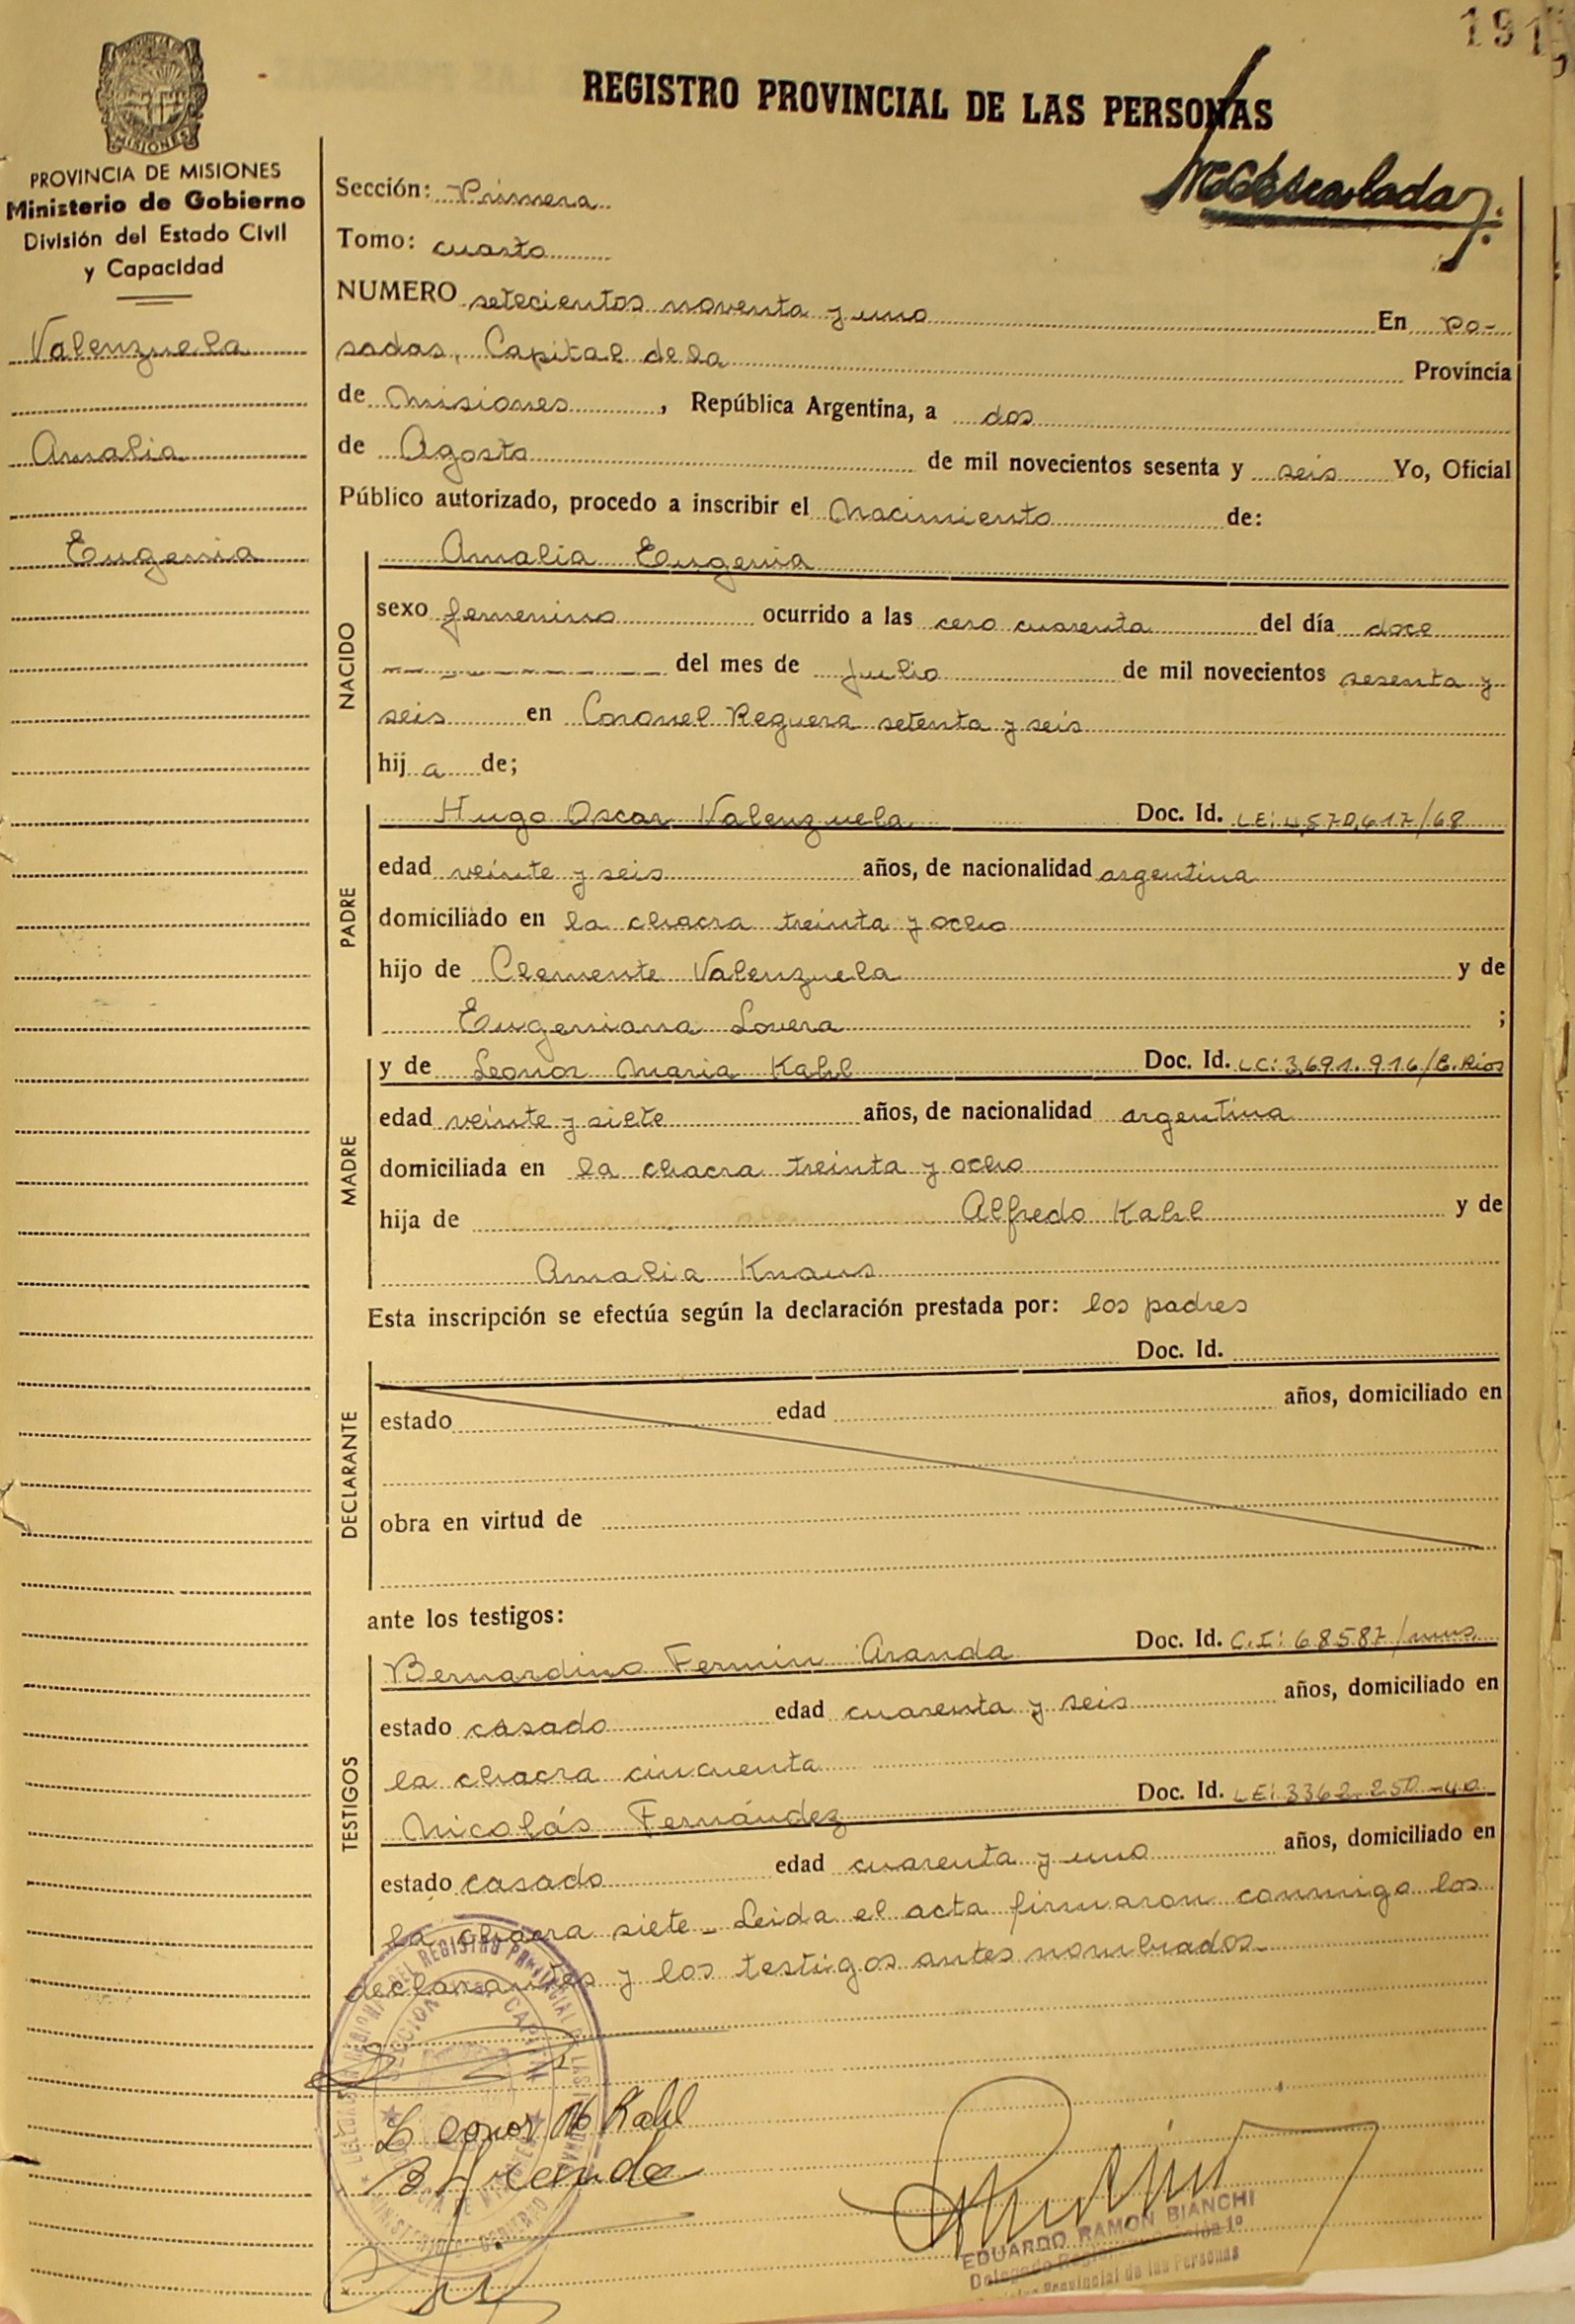 191
REGISTRO PROVINCIAL DE LAS PERSONAS
MISIONES
PROVINCIA DE MISIONES
Ministerio de Gobierno
División del Estado Civil
y Capacidad
Valenzuela
Amalia
Eugenia
Sección: Primera
Tomo: cuarto
NUMERO setecientos noventa y uno En Po-
sadas, Capital de la Provincia
de Misiones, República Argentina, a dos
de Agosto de mil novecientos sesenta y seis Yo, Oficial
Público autorizado, procedo a inscribir el Nacimiento de:
NACIDO
Amalia Eugenia
sexo femenino ocurrido a las cero cuarenta del día doce
del mes de julio de mil novecientos sesenta y
seis en Coronel Reguera setenta y seis
hij a de;
PADRE
Hugo Oscar Valenzuela Doc. Id. LE: 4,570,617/68
edad veinte y seis años, de nacionalidad argentina
domiciliado en la chacra treinta y ocho
hijo de Clemente Valenzuela y de
Eugeniana Lovera ;
MADRE
y de Leonor Maria Kahl Doc. Id. LC: 3,691.916/E. Rios
edad veinte y siete años, de nacionalidad argentina
domiciliada en la chacra treinta y ocho
hija de Alfredo Kahl y de
Amalia Knaus
Esta inscripción se efectúa según la declaración prestada por: los padres
DECLARANTE
Doc. Id.
estado edad años, domiciliado en
obra en virtud de
ante los testigos:
TESTIGOS
Bernardino Fermin Aranda Doc. Id. C.I: 68587/mns
estado casado edad cuarenta y seis años, domiciliado en
la chacra cincuenta
Nicolás Fernández Doc. Id. LE: 3362.250-40
estado casado edad cuarenta y uno años, domiciliado en
la chacra siete_ Leida el acta firmaron conmigo los
declarantes y los testigos antes nombrados_
Leonor M Kahl
B Aranda
EDUARDO RAMON BIANCHI
Provincial de las Personas